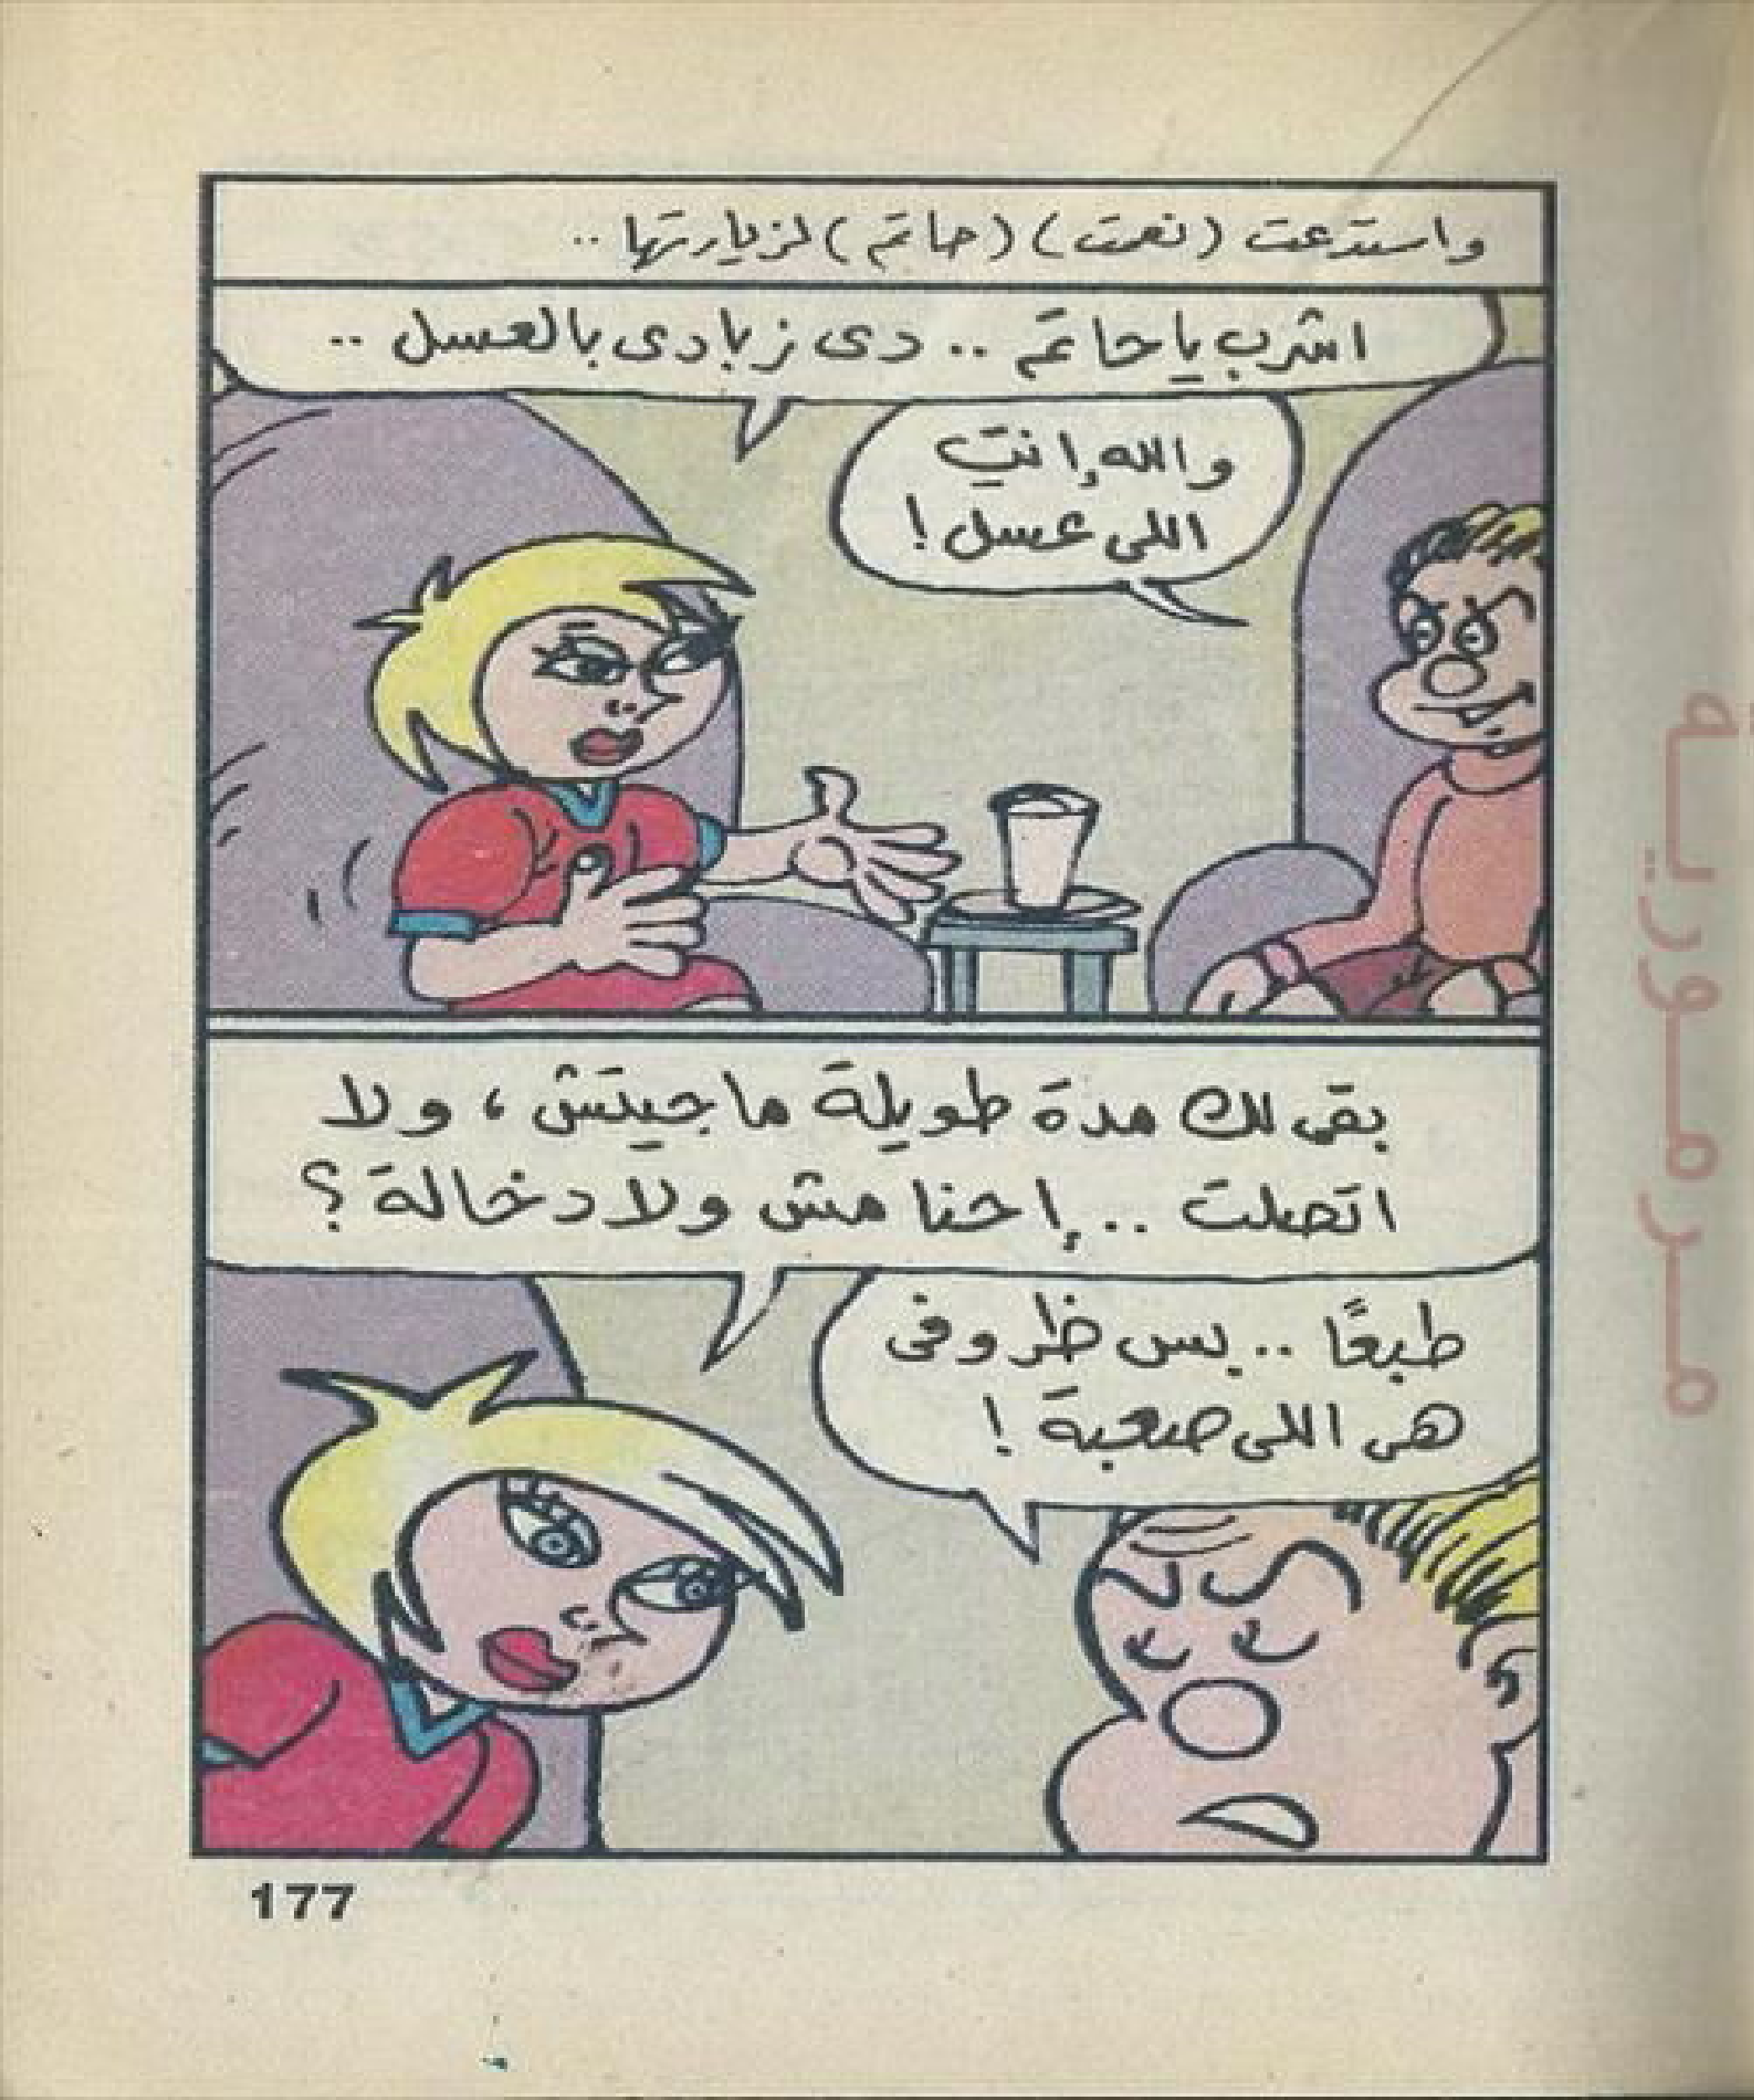 واستدعت (نعمت) (حاتم) لزيارتها ..
اشرب يا حاتم .. دى زبادى بالعسل ..
والله إنتِ
اللى عسل !
بقى لك مدة طويلة ما جيتش ، ولا
اتصلت .. إحنا مش ولاد خالة ؟
طبعًا .. بس ظروفى
هى اللى صعبة !
177
مرمورية